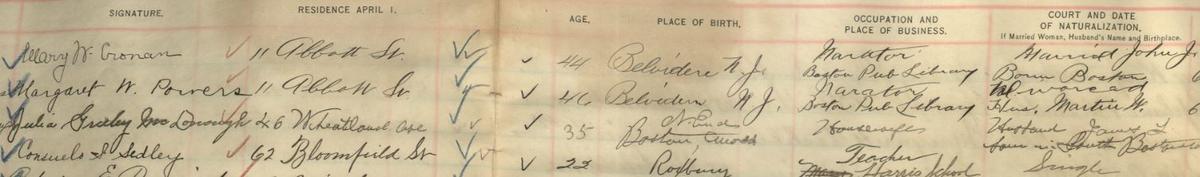 SIGNATURE. RESIDENCE APRIL 1. AGE. PLACE OF BIRTH. OCCUPATION AND PLACE OF BUSINESS. COURT AND DATE OF NATURALIZATION.
If Married Woman, Husband's Name and Birthplace.
Mary W Cronan 11 Abbott St. 44 Belvidere N J. Narator Married John J.
Boston Pub Library Born Boston
Margaret W. Powers 11 Abbott St 46 Belvidere N J. Narator
Boston Pub Library Hus. Martin W.
Julia Greeley McDonough 46 Wheatland Ave 35 N End Housewife Husband James
Boston, Mass born in South Boston
Consuelo Sedley 62 Bloomfield St 22 Roxbury Teacher Single
Harris School